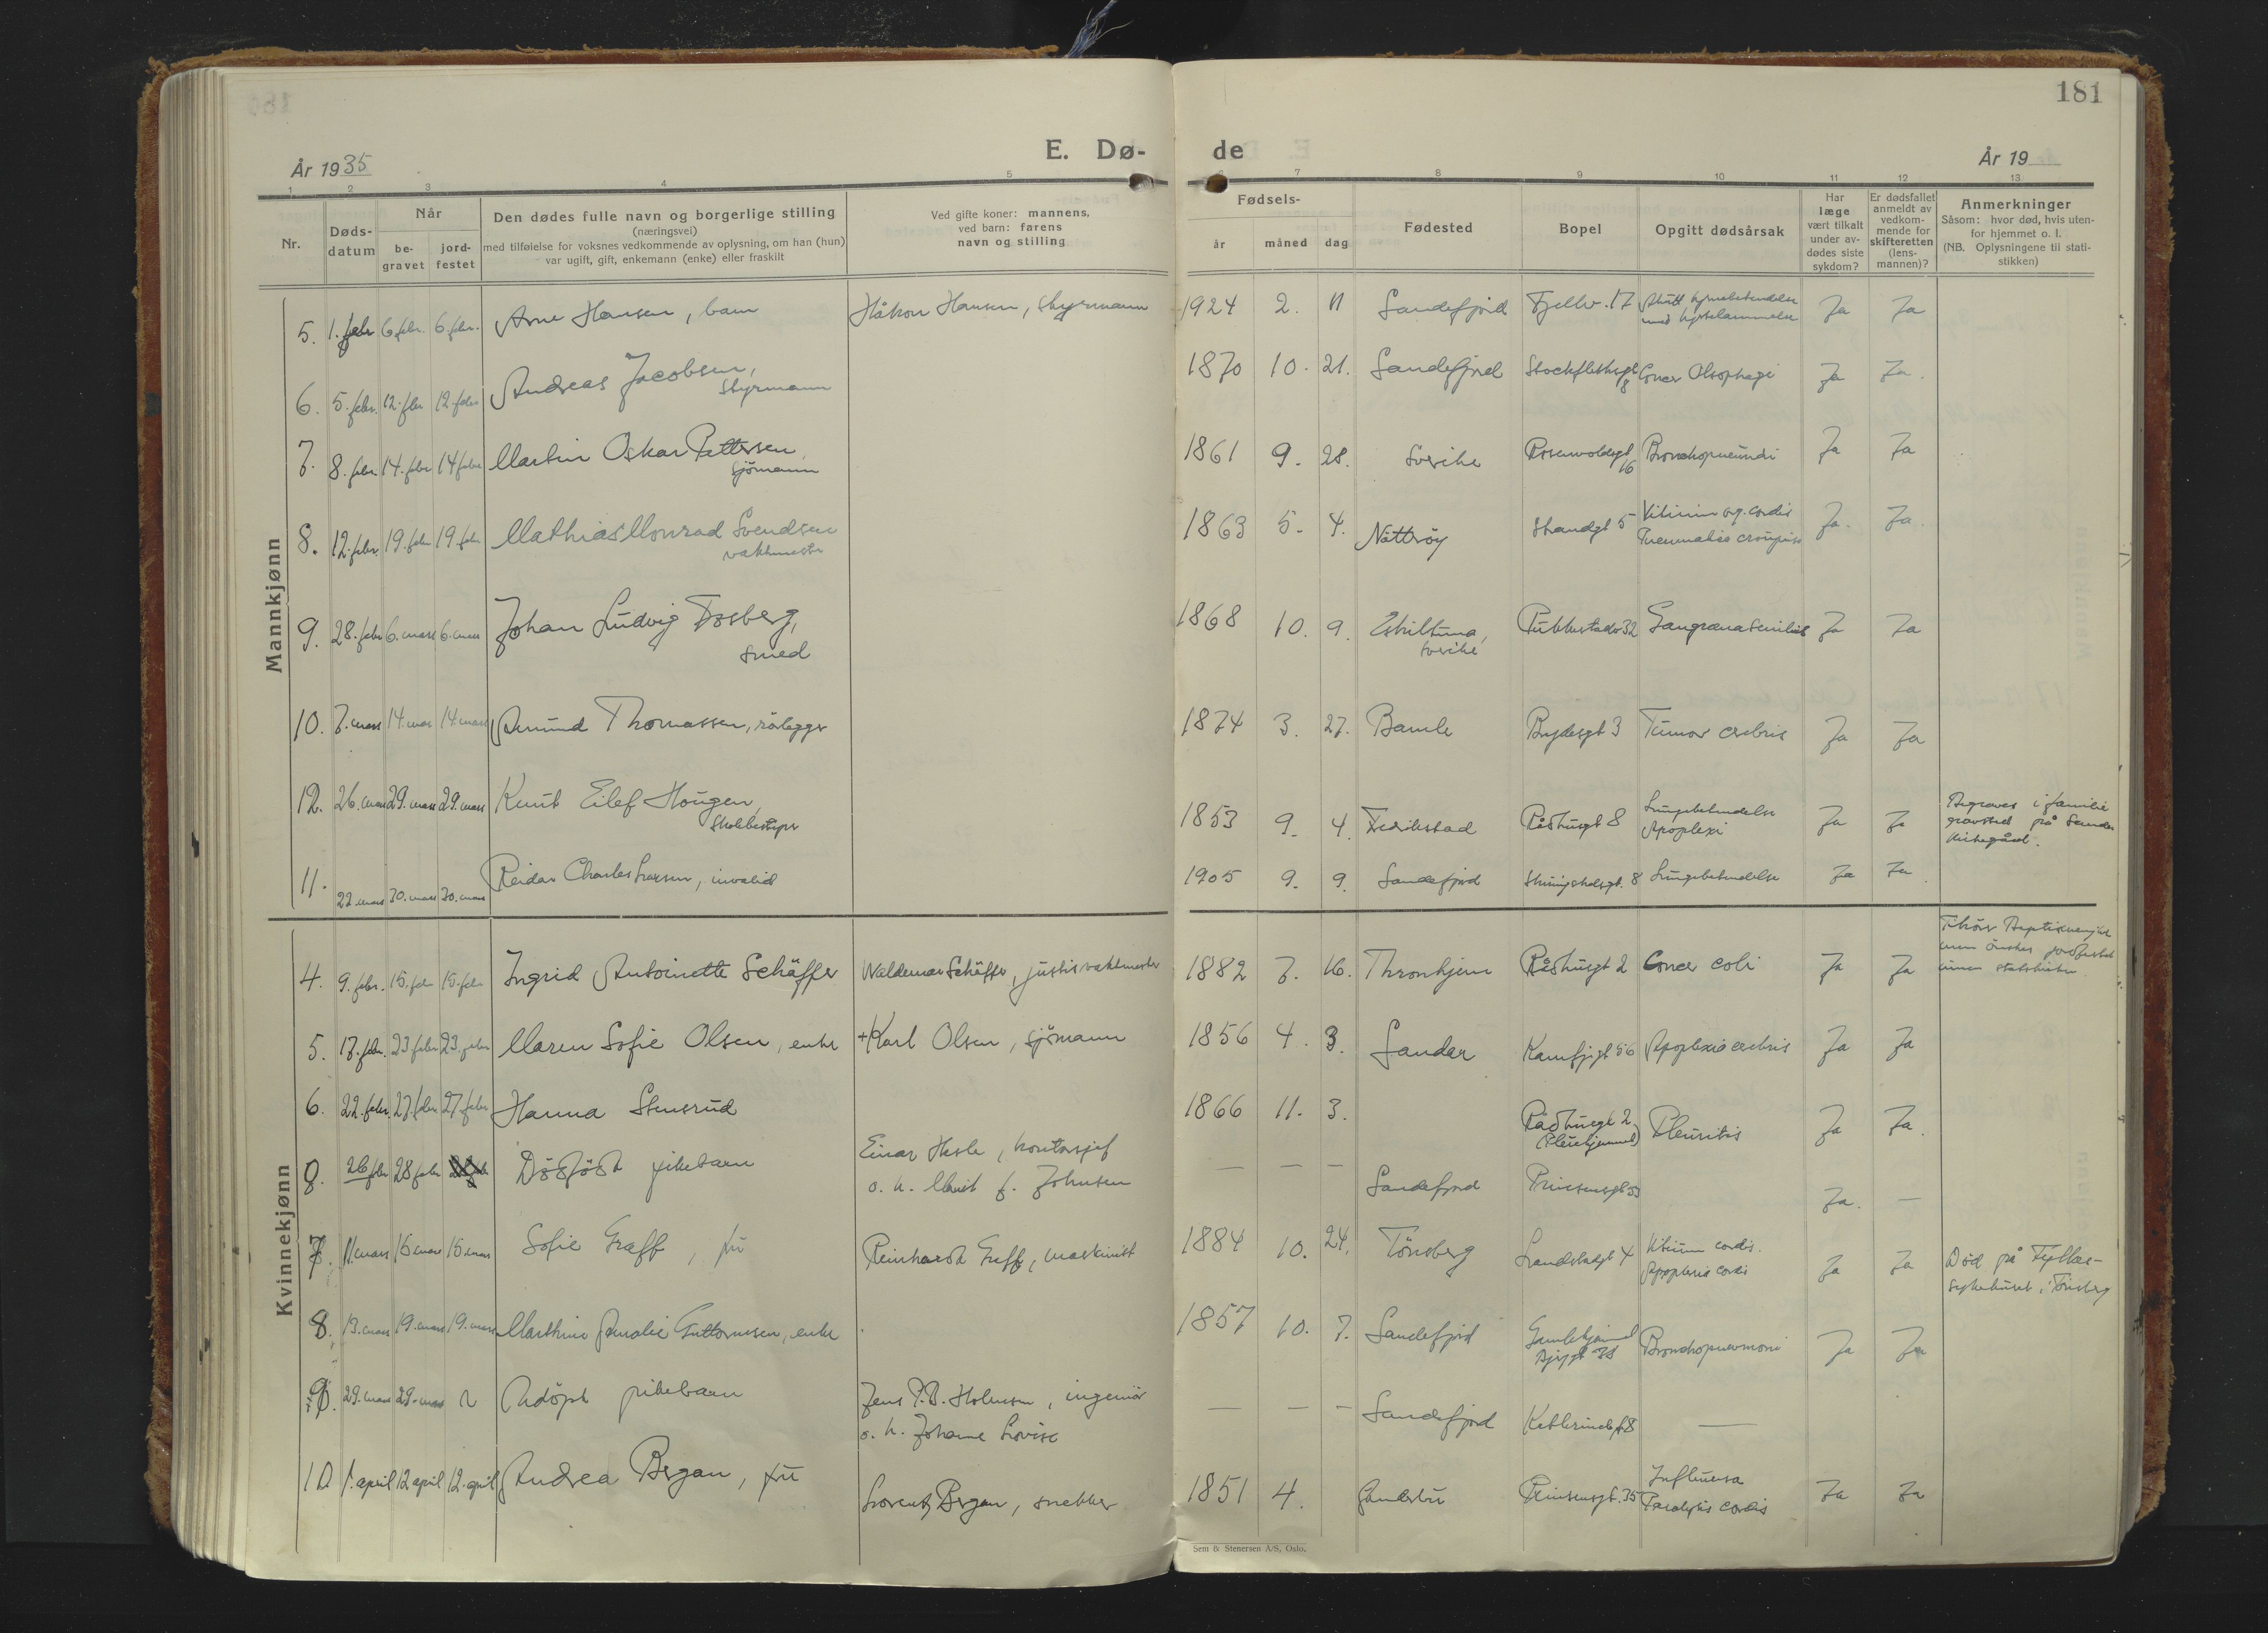 181
År 1935
E. Dø-
de
År 19
1 2 3 4 5 6 7 8 9 10 11 12 13
Nr.
Døds-
datum
Når
be-
gravet
jord-
festet
Den dødes fulle navn og borgerlige stilling
(næringsvei)
med tilføielse for voksnes vedkommende av oplysning, om han (hun)
var ugift, gift, enkemann (enke) eller fraskilt
Ved gifte koner: mannens,
ved barn: farens
navn og stilling
Fødsels-
år måned dag
Fødested
Bopel
Opgitt dødsårsak
Har
læge
vært tilkalt
under av-
dødes siste
sykdom?
Er dødsfallet
anmeldt av
vedkom-
mende for
skifteretten
(lens-
mannen)?
Anmerkninger
Såsom: hvor død, hvis uten-
for hjemmet o. l.
(NB. Oplysningene til stati-
stikken)
Mannkjønn
5. 1. febr 6 febr. 6. febr. Arne Hansen, barn Håkon Hansen, styrmann 1924 2. 11 Sandefjord Fjellv. 17 Ja Ja
6. 5. febr. 12. febr 12. febr Andreas Jacobsen,
styrmann 1870 10. 21. Sandefjord Cancer Ja Ja.
7. 8. febr. 14. febr 14 febr Martin Oskar Pettersen,
sjömann 1861 9. 28. Sverike 16 Bronchopneumoni Ja Ja
8. 12. febr. 19. febr 19. febr Mathias Monrad Svendsen
vaktmester 1863 5. 4. Nöttröy Strandgt 5 Vitium org. cordis
Ja. Ja.
9. 28. febr 6. mars 6. mars Johan Ludvig Fosberg,
smed 1868 10. 9. Eskiltuna,
Sverike Pukkestadv 32 Gangræna senilis Ja Ja
10. 7. mars 14. mars 14. mars Amund Thomassen, rörlegger 1874 3. 27. Bamle Brydesgt 3 Tumor cerebris Ja Ja
12. 26. mars 29. mars 29. mars Knut Eilef Hougen,
Skolebestyrer 1853 9. 4. Fredrikstad Rådhusgt 8 Lungebetendelse
Apoplexi Ja Ja Begraves i familie
gravsted på Sandar
kirkegård.
11. 22. mars 30. mars 30. mars Reidar Charles Larsen, invalid 1905 9. 9. Sandefjord 8 Lungebetendelse Ja Ja
Kvinnekjønn
4. 9. febr. 15. febr 15. febr Ingrid Antoinette Schäffer Waldemar Schäffer, justisvaktmester 1882 7. 16. Thronhjem Rådhusgt 2 Cancer coli Ja Ja
men önskes jordfestet
innen statskirken.
5. 17. febr. 23 febr 23. febr Maren Sofie Olsen, enke +Karl Olsen, sjömann 1856 4. 3. Sandar Kamfjgt 56 Apoplexia cerebris Ja Ja
6. 22. febr. 27. febr 27. febr Hanna Stensrud 1866 11. 3. Rådhusgt 2
(Pleiehjemmet) Pleuritis Ja Ja.
8. 26 febr 28 febr Dödfödt pikebarn Einar Hesle, kontorsjef
o. h. Marit f. Johnsen — — — Sandefjord Prinsensgt 53 Ja. —
7. 11. mars 15 mars 15. mars Sofie Graff, fru Reinhardt Graff, maskinist 1884 10. 24. Tönsberg Landstadgt 4 Vitium cordis.
Apoplexia cordis Ja Ja Död på Fylkes-
sykehuset i Tönsberg
8. 13. mars 19. mars 19. mars Marthine Amalie Guttormsen, enke 1857 10. 7. Sandefjord Gamlehjemmet
Bronchopneumoni Ja Ja
9. 29. mars 29. mars Udöpt pikebarn Jens P. B. Holmsen, ingeniör
o. h. Johanne Lovise — — — Sandefjord —
10. 1. april 12 april 12. april Andrea Bergan, fru Lorentz Bergan, snekker 1851 4. Prinsensgt. 35 Influensa
Paralysis cordis Ja Ja
Sem & Stenersen A/S, Oslo.